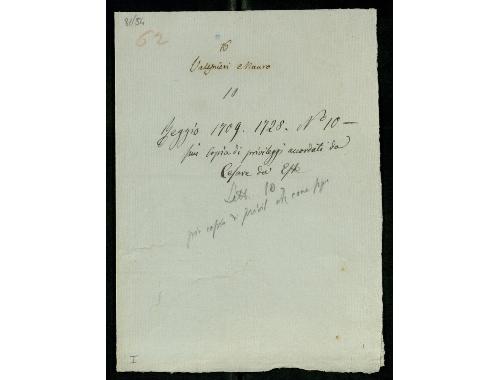 81/54
62
16
Valisnieri Mauro
10
Reggio 1709. 1728. N° 10 —
più Copia di privileggi accordati da
Cesare da Este
Lett. 10
più copia di privil
I